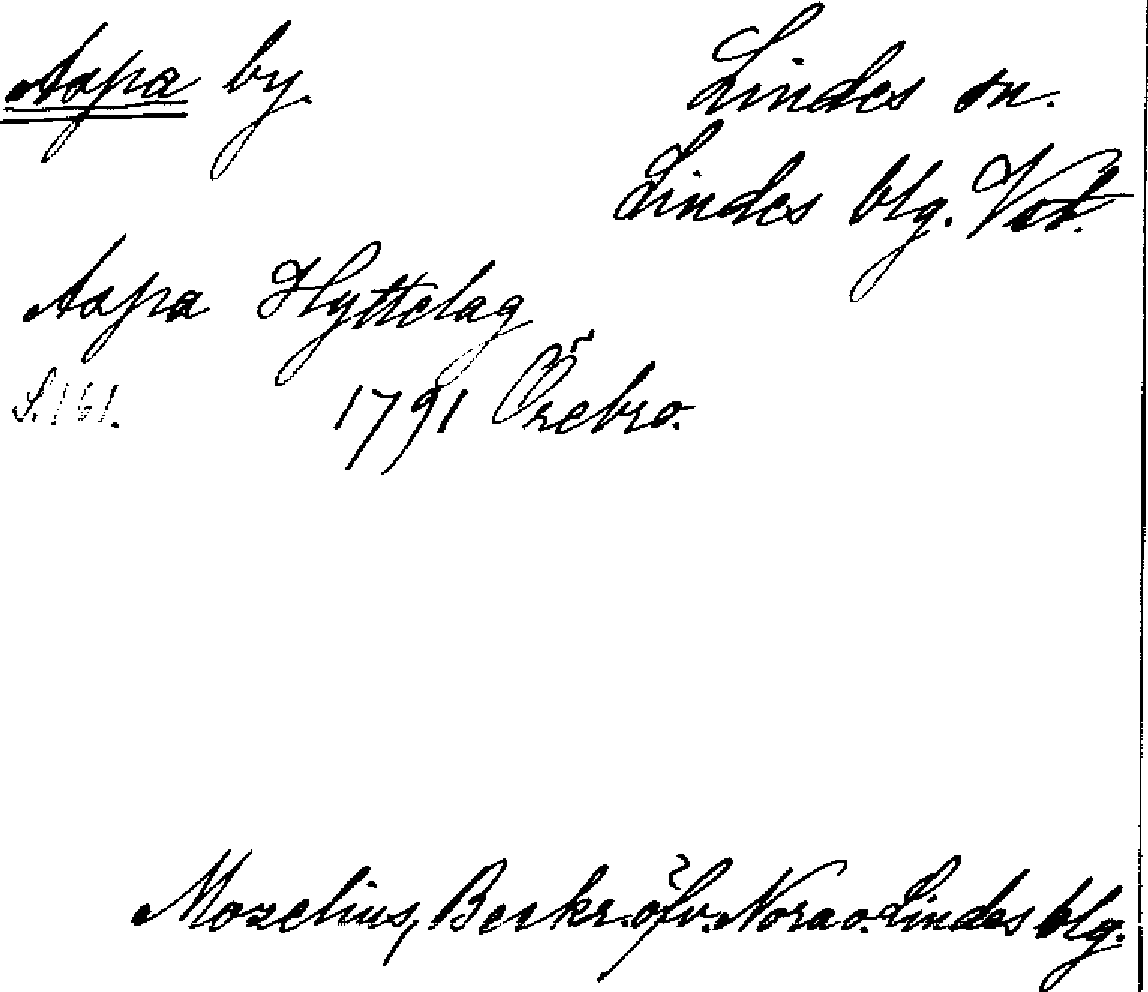 Aspa by.
Lindes sn.
Lindes blg. Vstl.
Aspa Hyttelag
S. 161. 1791 Örebro.
Mozelius, Beskr. öfv. Nora o. Lindes blg.